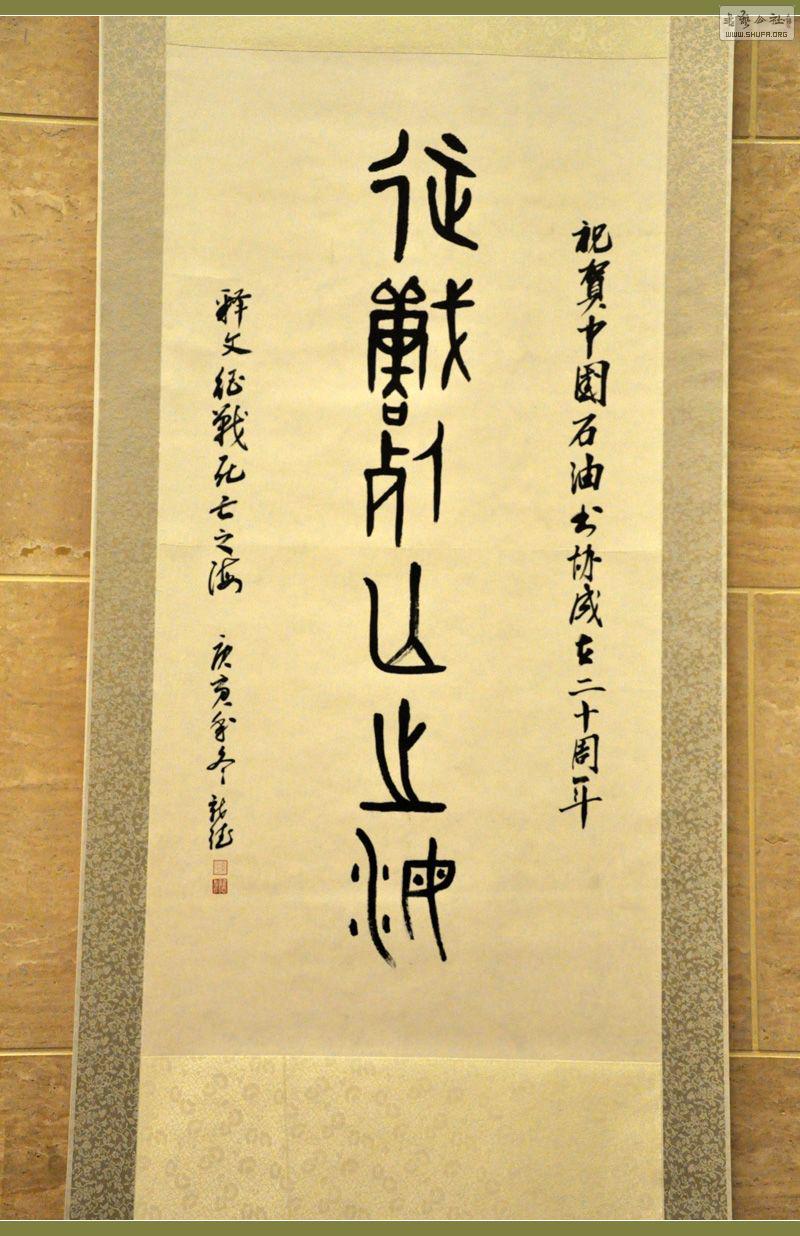 祝贺中国石油书协成立二十周年
征战死亡之海
释文征战死亡之海 庚寅年冬
书艺公社
WWW.SHUFA.ORG